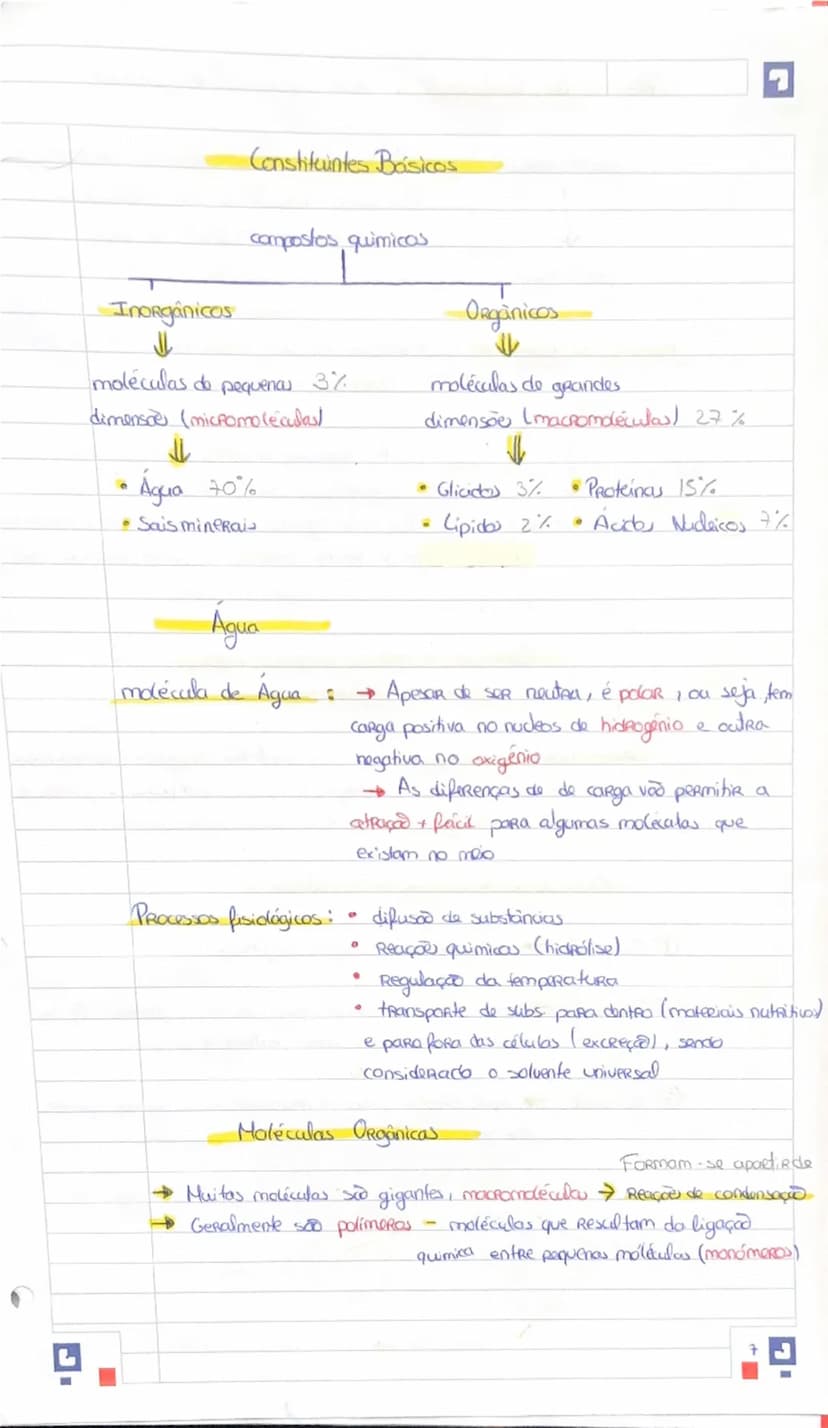 Constituintes Básicos
compostos químicos
Inorgânicos
Orgânicos
moléculas de pequenas 3%
dimensões (micromoléculas)
moléculas de grandes
dimensões (macromoléculas) 27 %
• Água 70%
• Sais minerais
• Glicidos 3% • Proteínas 15%
• Lípidos 2% • Ácidos Nucleicos 7%
Água
molécula de Água : → Apesar de ser neutra, é polar, ou seja, tem
carga positiva no nucleos de hidrogénio e outra
negativa no oxigénio
→ As diferenças de de carga vão permitir a
atração + fácil para algumas moléculas que
existam no meio
Processos fisiológicos: • difusão de substâncias
• Reações químicas (hidrólise)
• Regulação da temperatura
• transporte de subs para dentro (materiais nutritivos)
e para fora das células (excreção), sendo
considerado o solvente universal
Moléculas Orgânicas
Formam-se apartir de
→ Muitas moléculas são gigantes, macromolécula → Reações de condensação
→ Geralmente são polímeros - moléculas que resultam da ligação
química entre pequenas moléculas (monómeros)
7